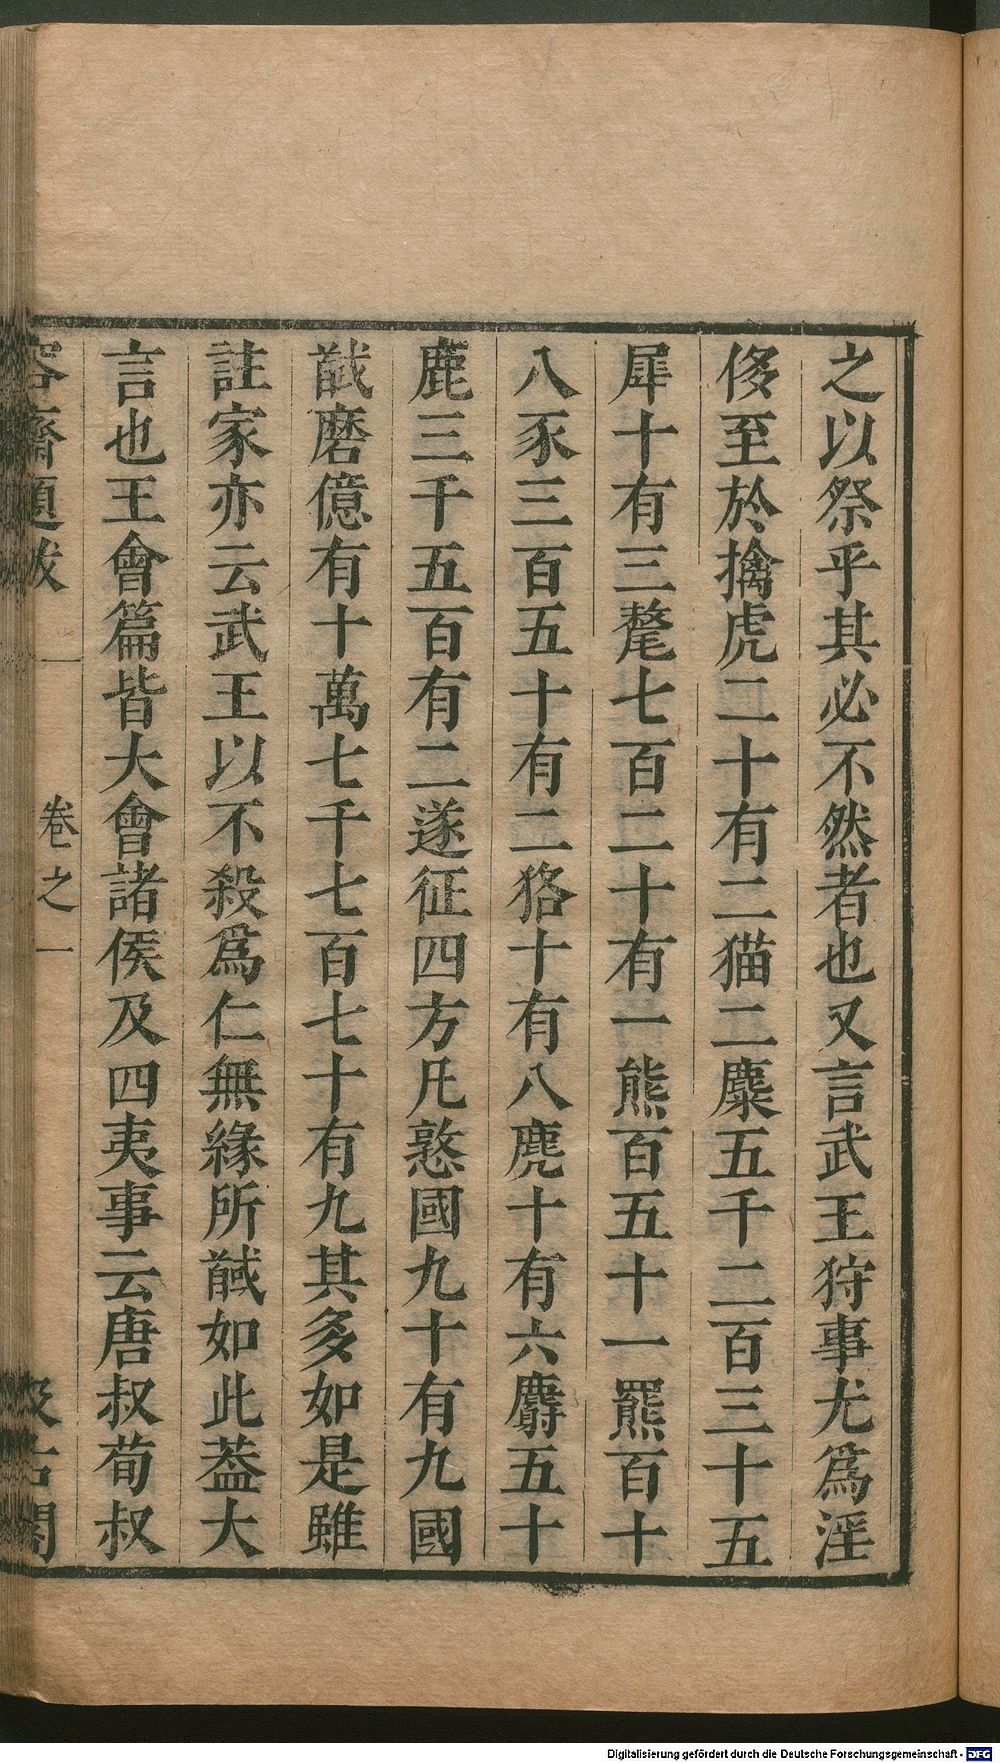 之以祭乎其必不然者也又言武王狩事尤爲淫
侈至於擒虎二十有二猫二麋五千二百三十五
犀十有三氂七百二十有一熊百五十一羆百十
八豕三百五十有二狢十有八麂十有六麝五十
鹿三千五百有二遂征四方凡憝國九十有九國
馘磨億有十萬七千七百七十有九其多如是雖
註家亦云武王以不殺爲仁無緣所馘如此葢大
言也王會篇皆大會諸侯及四夷事云唐叔荀叔
容齋題跋 卷之一 汲古閣
Digitalisierung gefördert durch die Deutsche Forschungsgemeinschaft - DFG